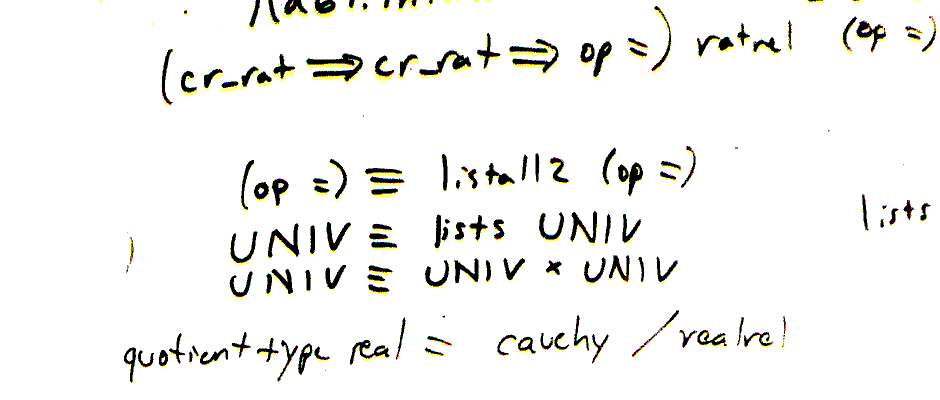 (cr_rat ⟹ cr_rat ⟹ op =) ratrel (op =)
(op =) ≡ listall2 (op =)
UNIV ≡ lists UNIV lists
UNIV ≡ UNIV × UNIV
quotient type real = cauchy / realrel